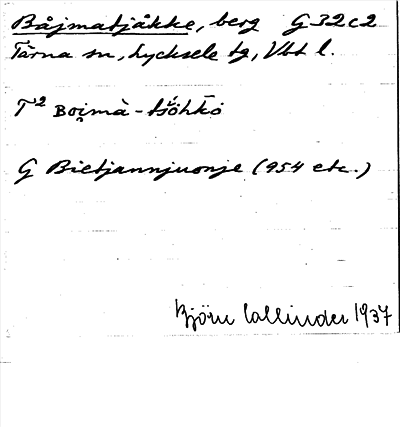 Båjmatjåkke, berg G32c2
Tärna sn, Lycksele tg, Vbt l.
T² Boi̯mà - tšŏ́hkō
G Bietjannjuonje (954 etc.)
Björn Collinder 1937